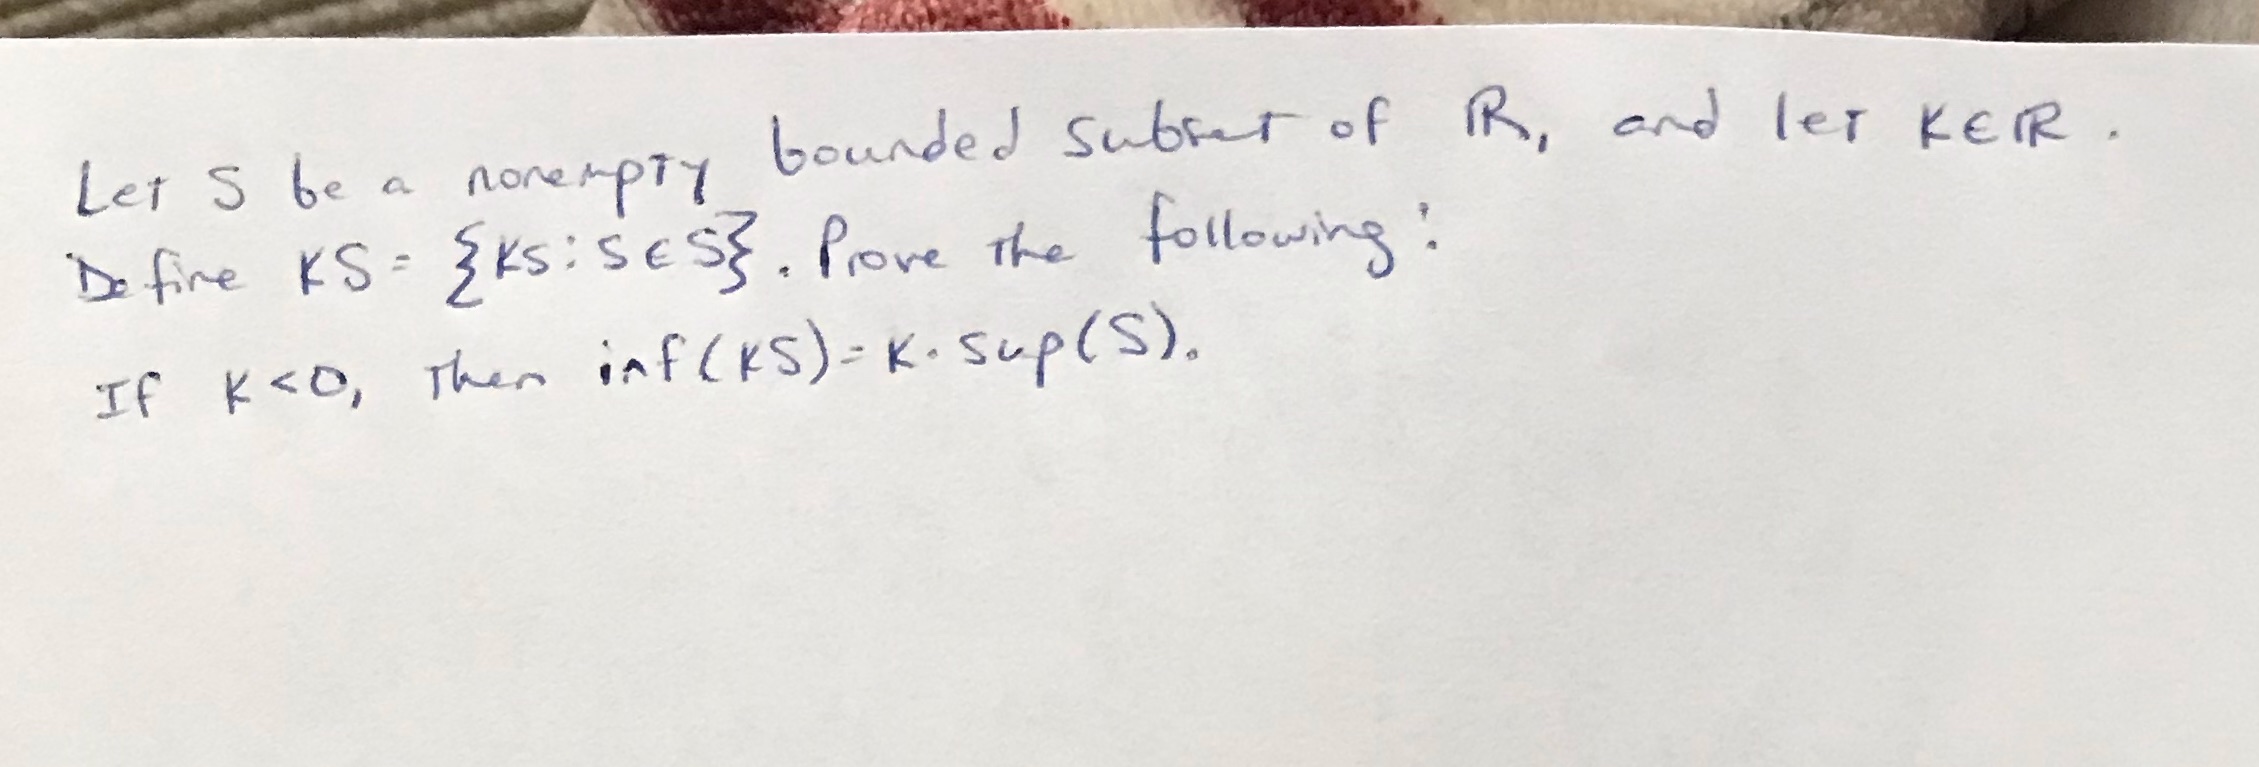 Let S be a nonempty bounded subset of ℝ, and let K∈ℝ.
Define KS = {Ks : s ∈ S}. Prove the following:
If K<0, then inf(KS) = K · sup(S).